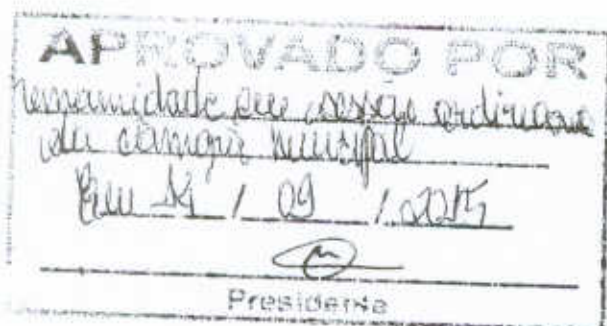 APROVADO POR
unanimidade em sessão ordinária
da câmara municipal
Em / 09 / 2015
Presidente